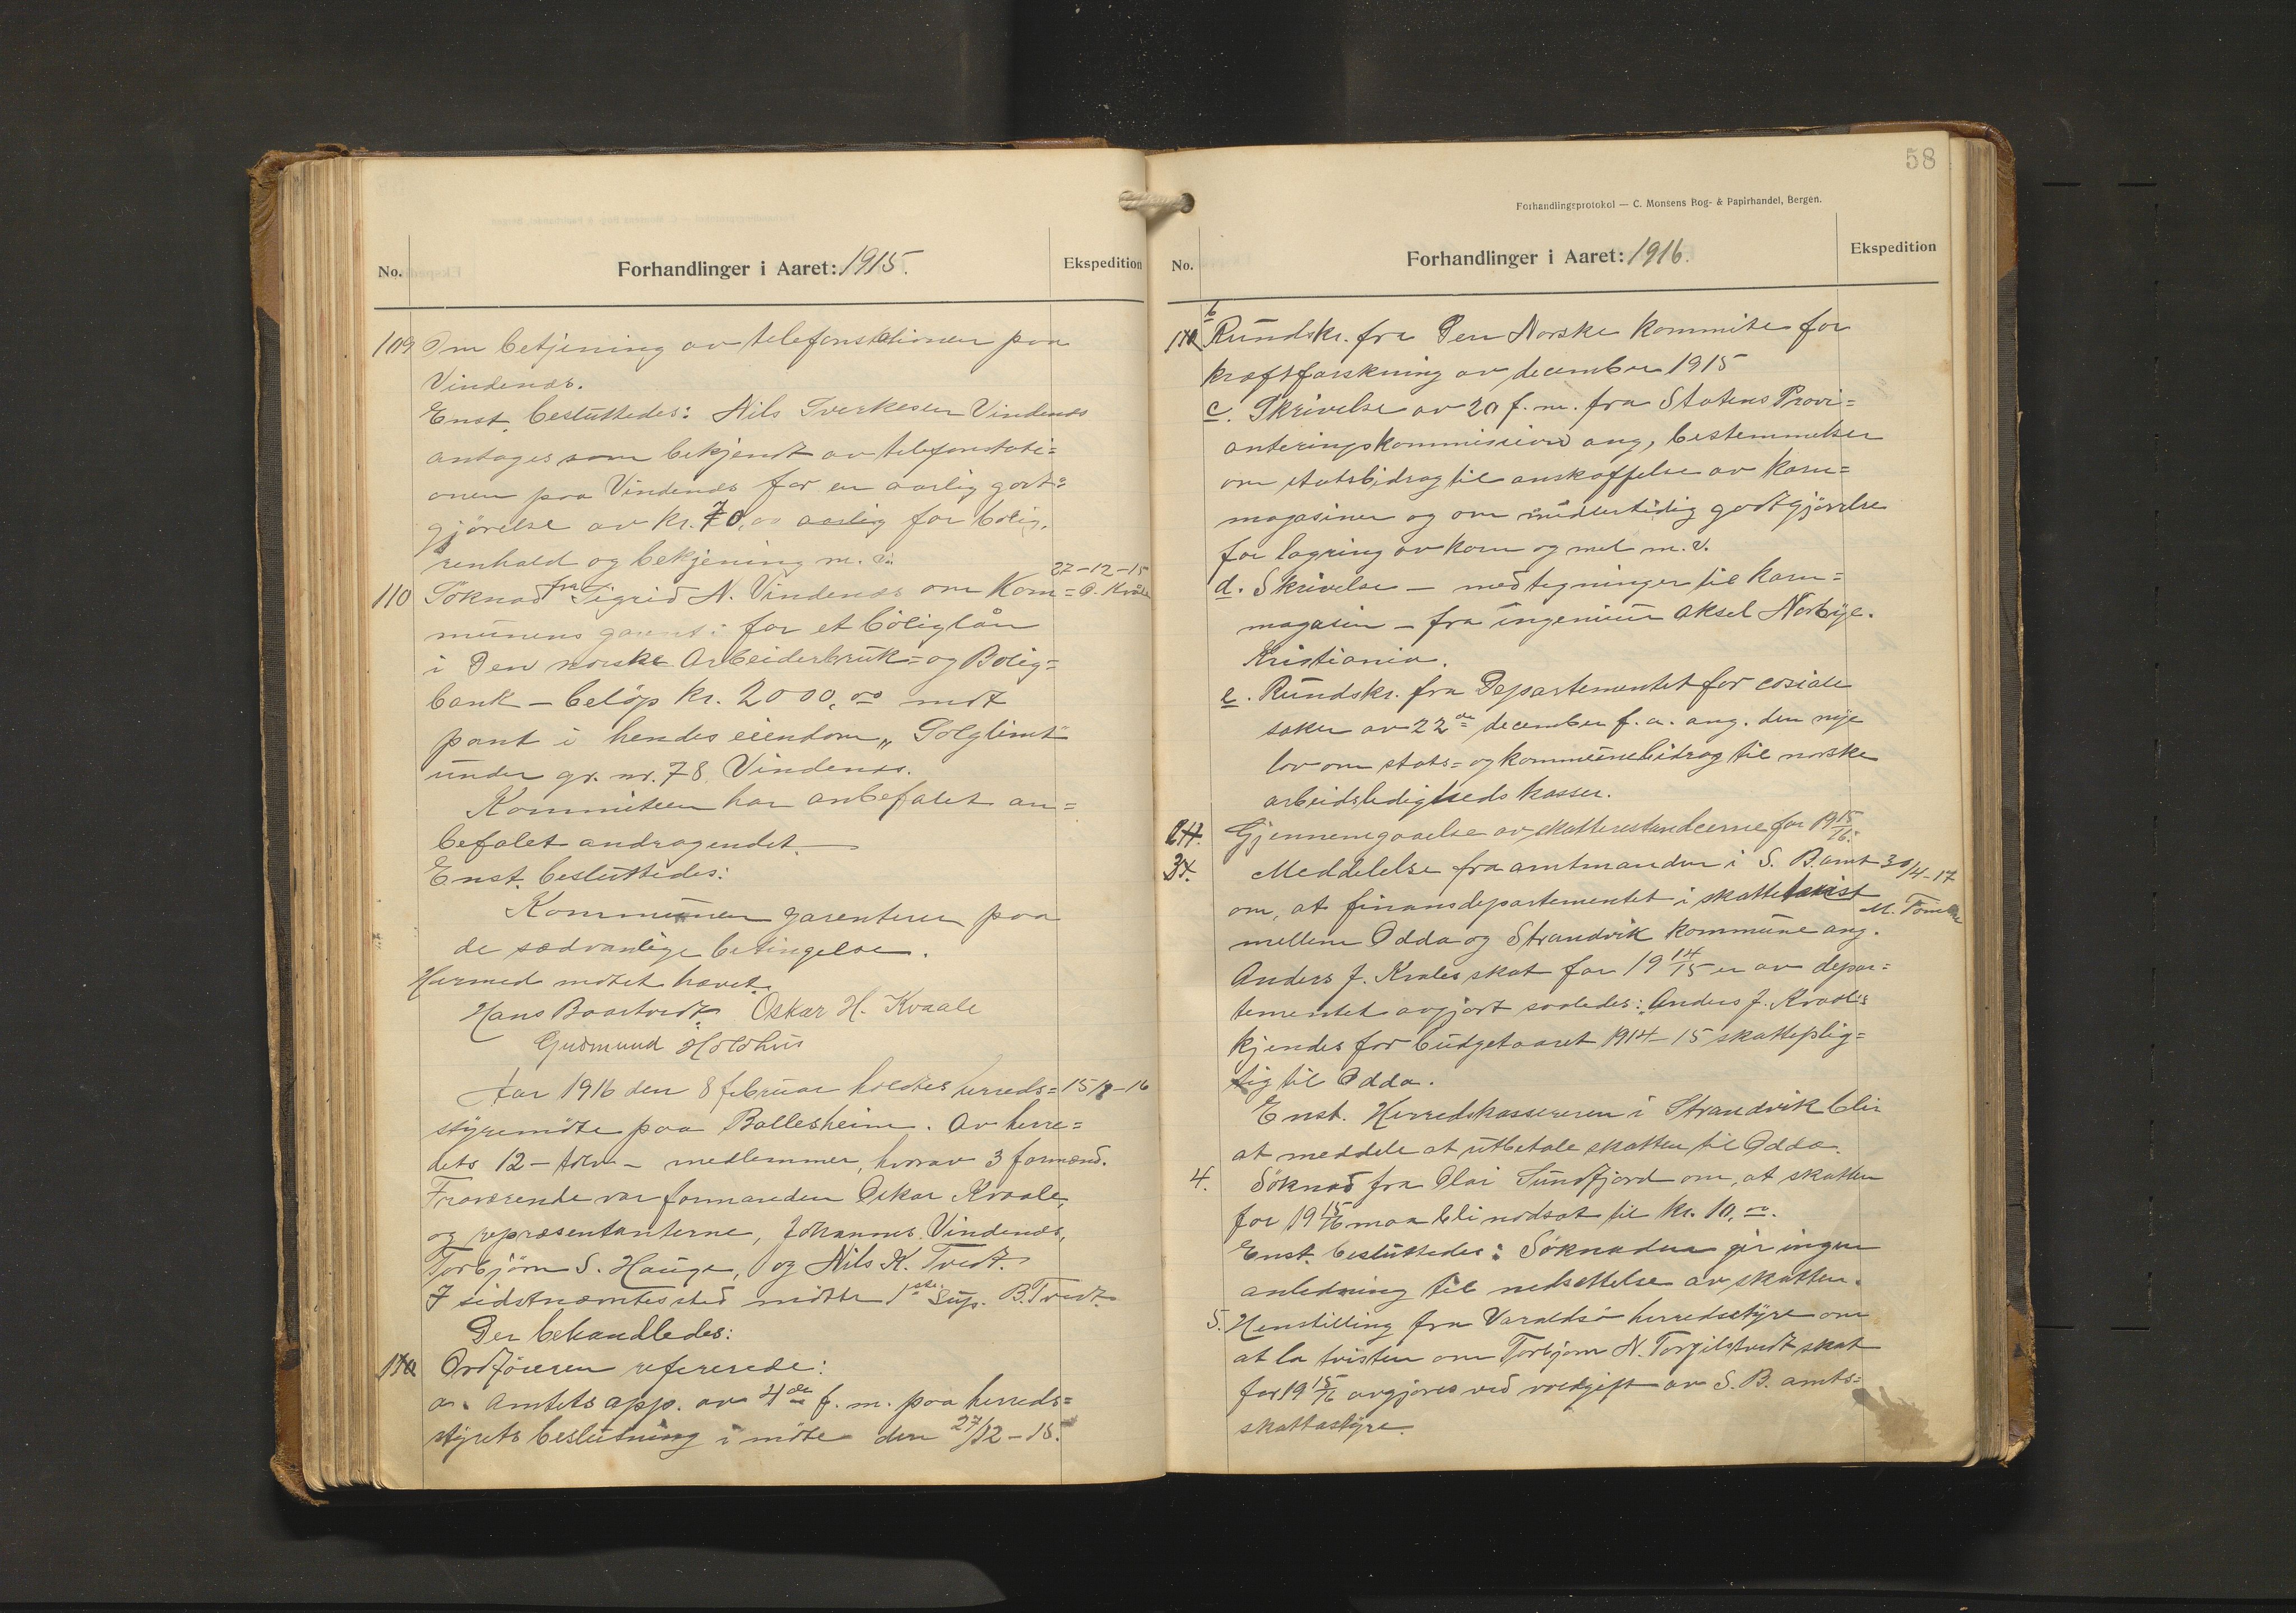 No.
Forhandlinger i Aaret: 1915.
Ekspedition
109 Om betjening av telefonstationen paa
Vindenes.
Enst. besluttedes: Nils Sverkesen Vindenes
antages som bekjendt av telefonstati=
onen paa Vindenes for en aarlig godt=
gjörelse av kr. 70,00 aarlig for bolig,
renhald og bekjening m. v.
27-12-15
110 Söknad fra Sigrid N. Vindenes om Kom= O. Kvåle
munens garanti for et boliglån
i Den norske Arbeiderbruk= og Bolig=
bank — belöp kr. 2000,00 mot
pant i hendes eiendom „Solglimt"
under gr. nr. 78 Vindenes.
Kommiteen har anbefalet an=
befalet andragendet.
Enst. besluttedes:
Kommunen garenterer paa
de sædvanlige betingelse.
Hermed mötet hævet.
Hans Baartvedt Oskar H. Kvaale
Gudmund Holdhus
Aar 1916 den 8 februar holdtes herreds= 15/2-16
styremöte paa Ballesheim. Av herre=
dets 12 - tolv - medlemmer, hvorav 3 formænd.
Fraværende var formanden Oskar Kvaale,
og repræsentanterne, Johannes Vindenes,
Torbjörn S. Hauge, og Nils K. Tvedt.
I sidstnævntes sted mötte 1ste sup. B. Tvedt.
Der behandledes:
1a Ordföreren refererede:
a. Amtets app. av 4de f. m. paa herreds=
styrets beslutning i möte den 27/12-15.
58
Forhandlingsprotokol — C. Monsens Bog- & Papirhandel, Bergen.
No.
Forhandlinger i Aaret: 1916.
Ekspedition
b
Rundskr. fra Den Norske Kommite for
kræftforskning av december 1915
c. Skrivelse av 20 f. m. fra Statens Provi=
anteringskommision ang, bestemmelser
om statsbidrag til anskaffelse av korn=
magasiner og om midlertidig godtgjörelse
for lagring av korn og mel m. v.
d. Skrivelse — med tegninger til korn=
magasin — fra ingeniör Aksel Norbye.
Kristiania.
e. Rundskr. fra Departementet for sosiale
saker av 22de december f. a. ang. den nye
lov om stats= og kommunebidrag til norske
arbeidsledigheds kasser.
2. Gjennemgaaelse av skatterestanserne for 1915/16.
3. Meddelelse fra amtmanden i S. B. amt 30/4-17
om, at finansdepartementet i skattetvist
mellem Odda og Strandvik kommune ang.
Anders J. Kvales skat for 1914/15 er av depar=
tementet avgjort saaledes: „Anders J. Kvaale
kjendes for budgetaaret 1914-15 skatteplig=
tig til Odda.
Enst. Herredskassereren i Strandvik blir
at meddele at utbetale skatten til Odda.
4. Söknad fra Olai Sundfjord om, at skatten
for 1915/16 maa bli nedsat til kr. 10,00.
Enst. besluttedes: Söknaden gir ingen
anledning til nedsettelse av skatten.
5. Henstilling fra Varaldsö herredsstyre om
at la tvisten om Torbjörn N. Torgilstvedt skat
for 1915/16 avgjöres ved voldgift av S. B. amts=
skattastyre.